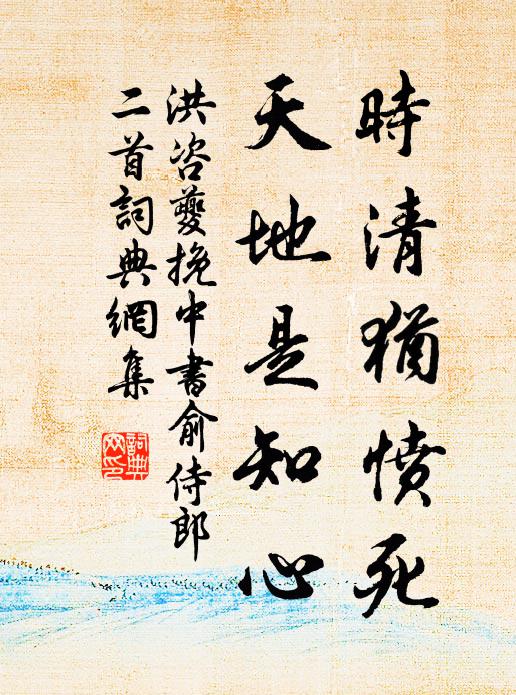 時清猶憤死
天地是知心
洪咨夔挽中書俞侍郎
二首詞典網集
詞典網印